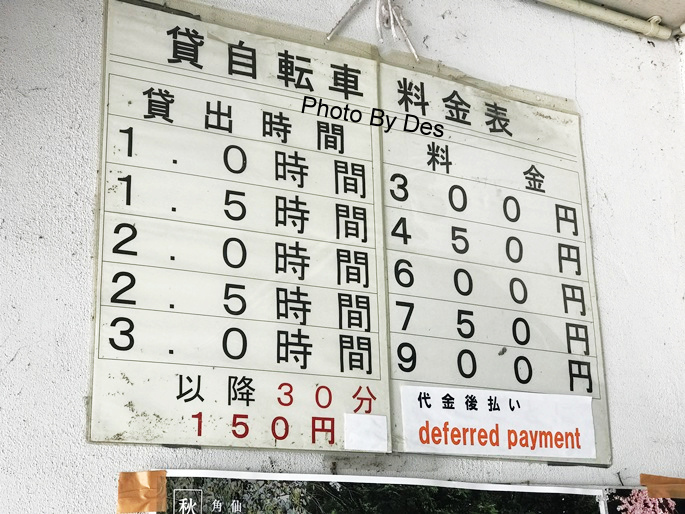 貸自転車 料金表
Photo By Des
貸出時間 料金
1.0時間 300円
1.5時間 450円
2.0時間 600円
2.5時間 750円
3.0時間 900円
以降30分
150円
代金後払い
deferred payment
秋 角仙